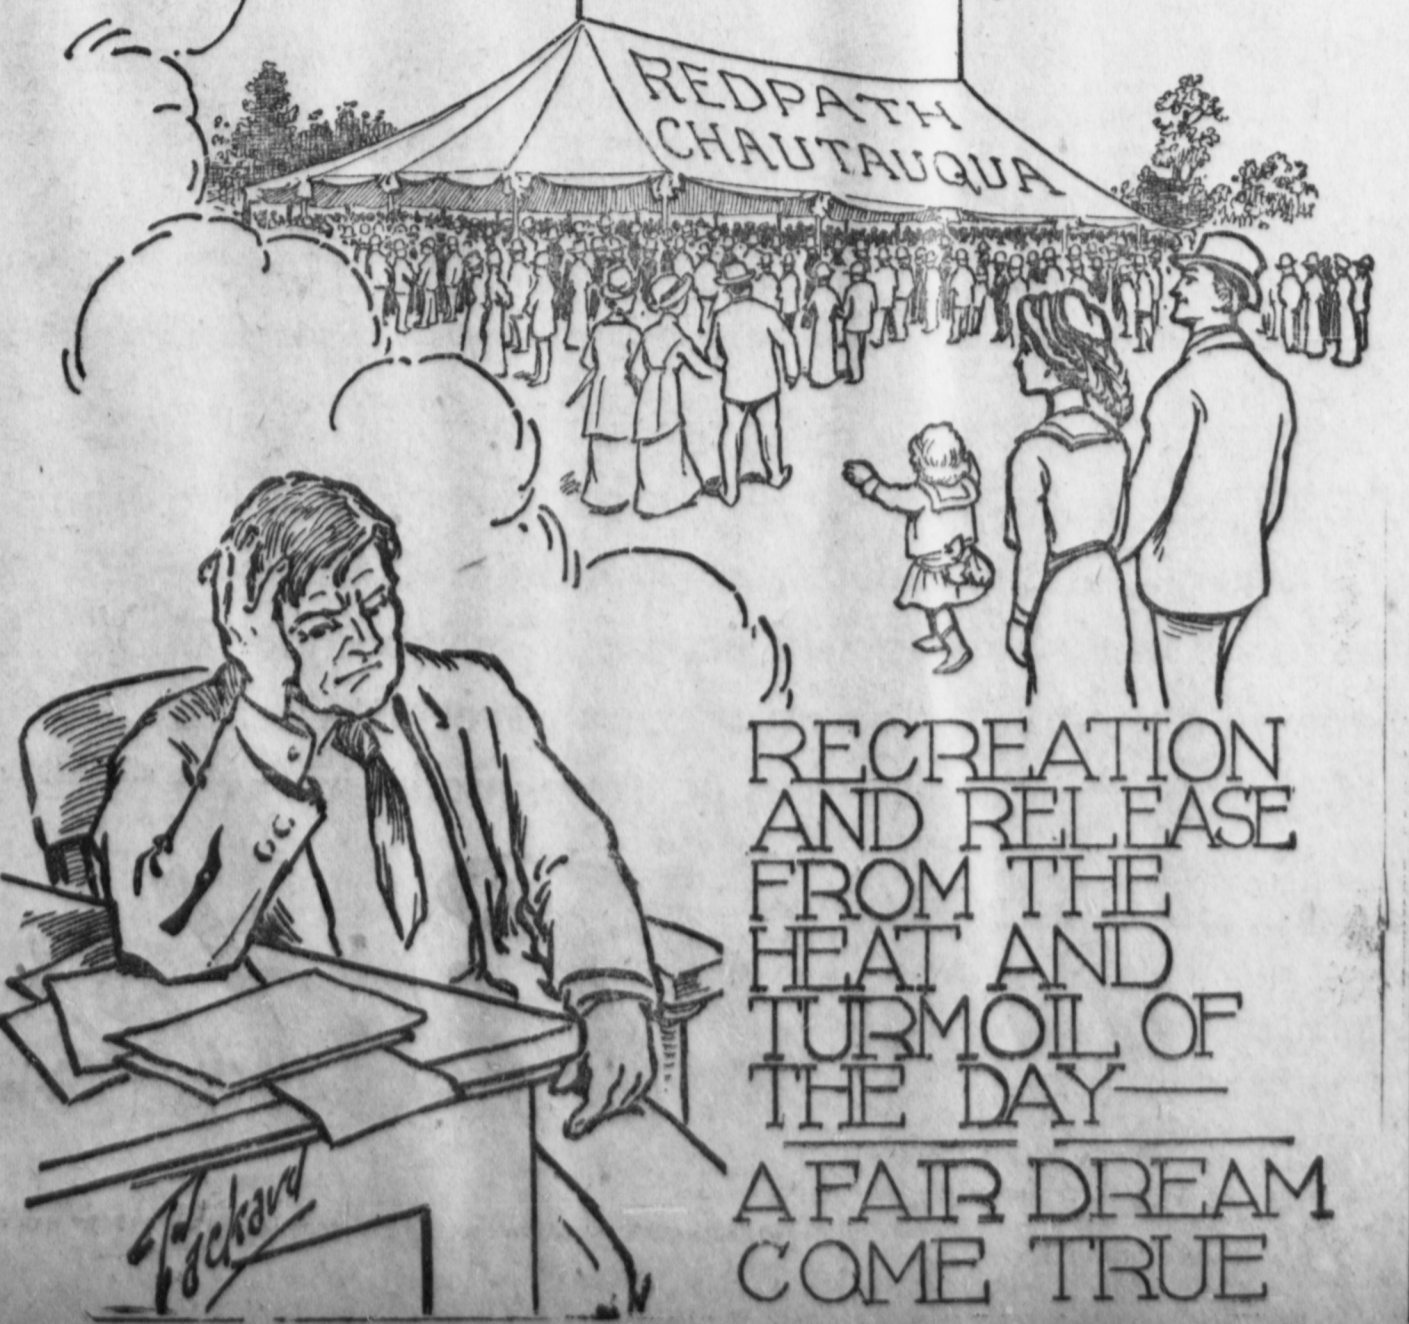 REDPATH
CHAUTAUQUA
RECREATION
AND RELEASE
FROM THE
HEAT AND
TURMOIL OF
THE DAY—
A FAIR DREAM
COME TRUE
Packard